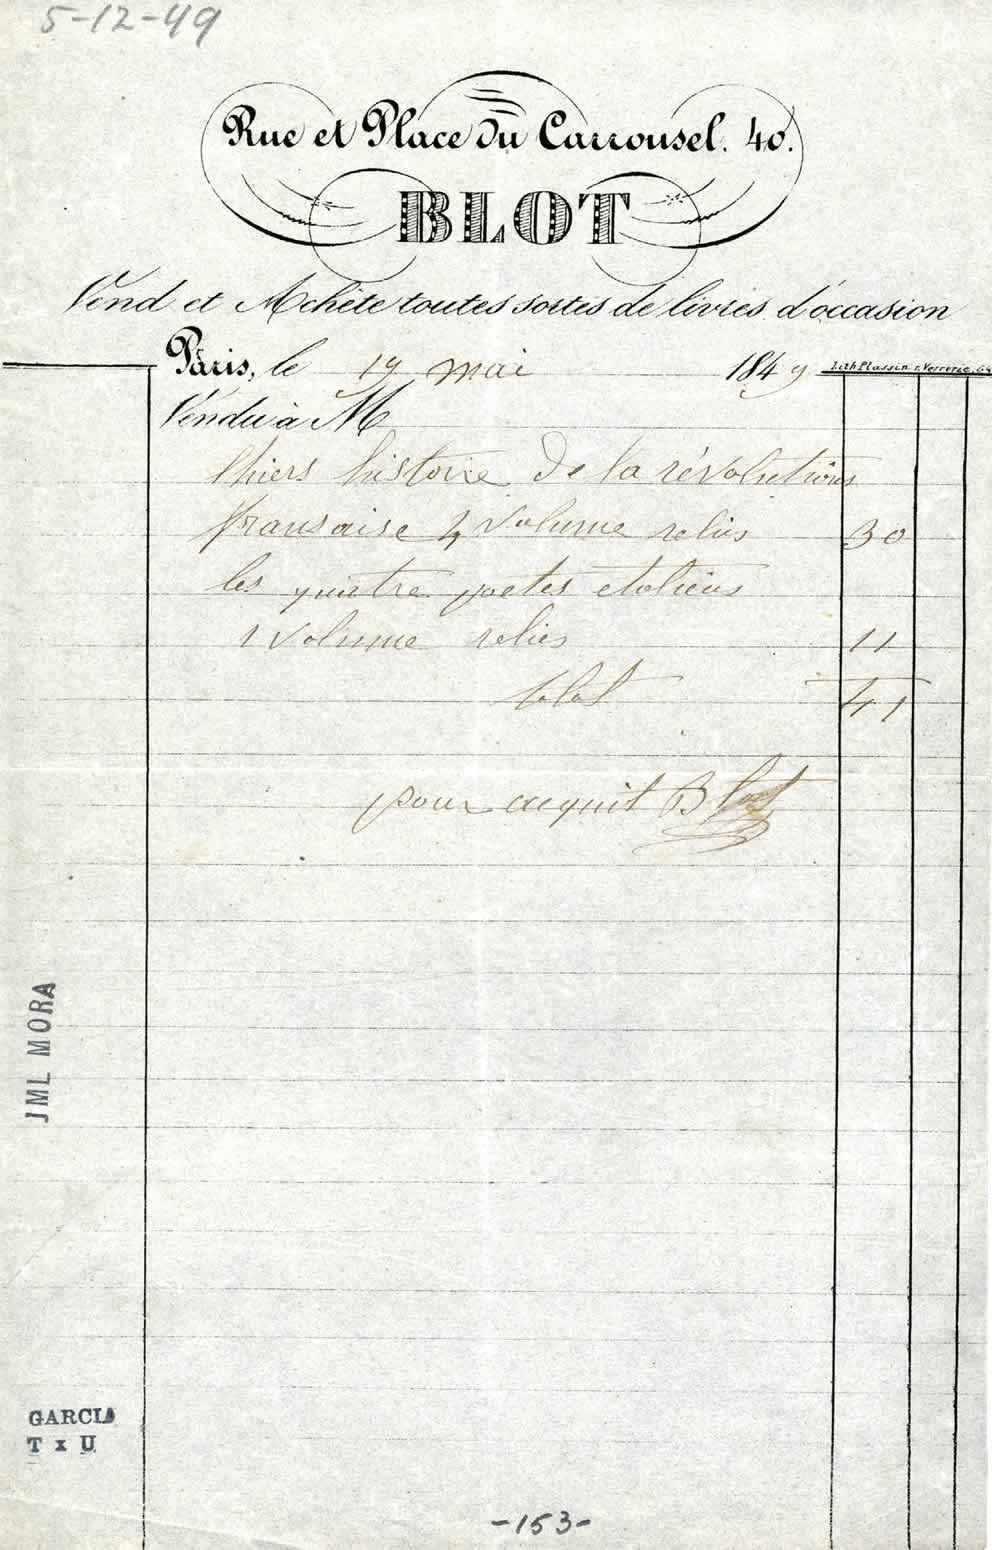 5-12-49
Rue et Place du Carrousel. 40.
BLOT
Vend et Achète toutes sortes de livres d'occasion
Paris, le 19 mai 1849
Lith Plassin r. Verrerie. 64
Vendu à M
thiers histoire de la révolutions
fransaise 4 volume reliés 30
les quatre poetes etaliens
1 volume reliés 11
total 41
pour acquit Blot
JML MORA
GARCIA
T x U
-153-